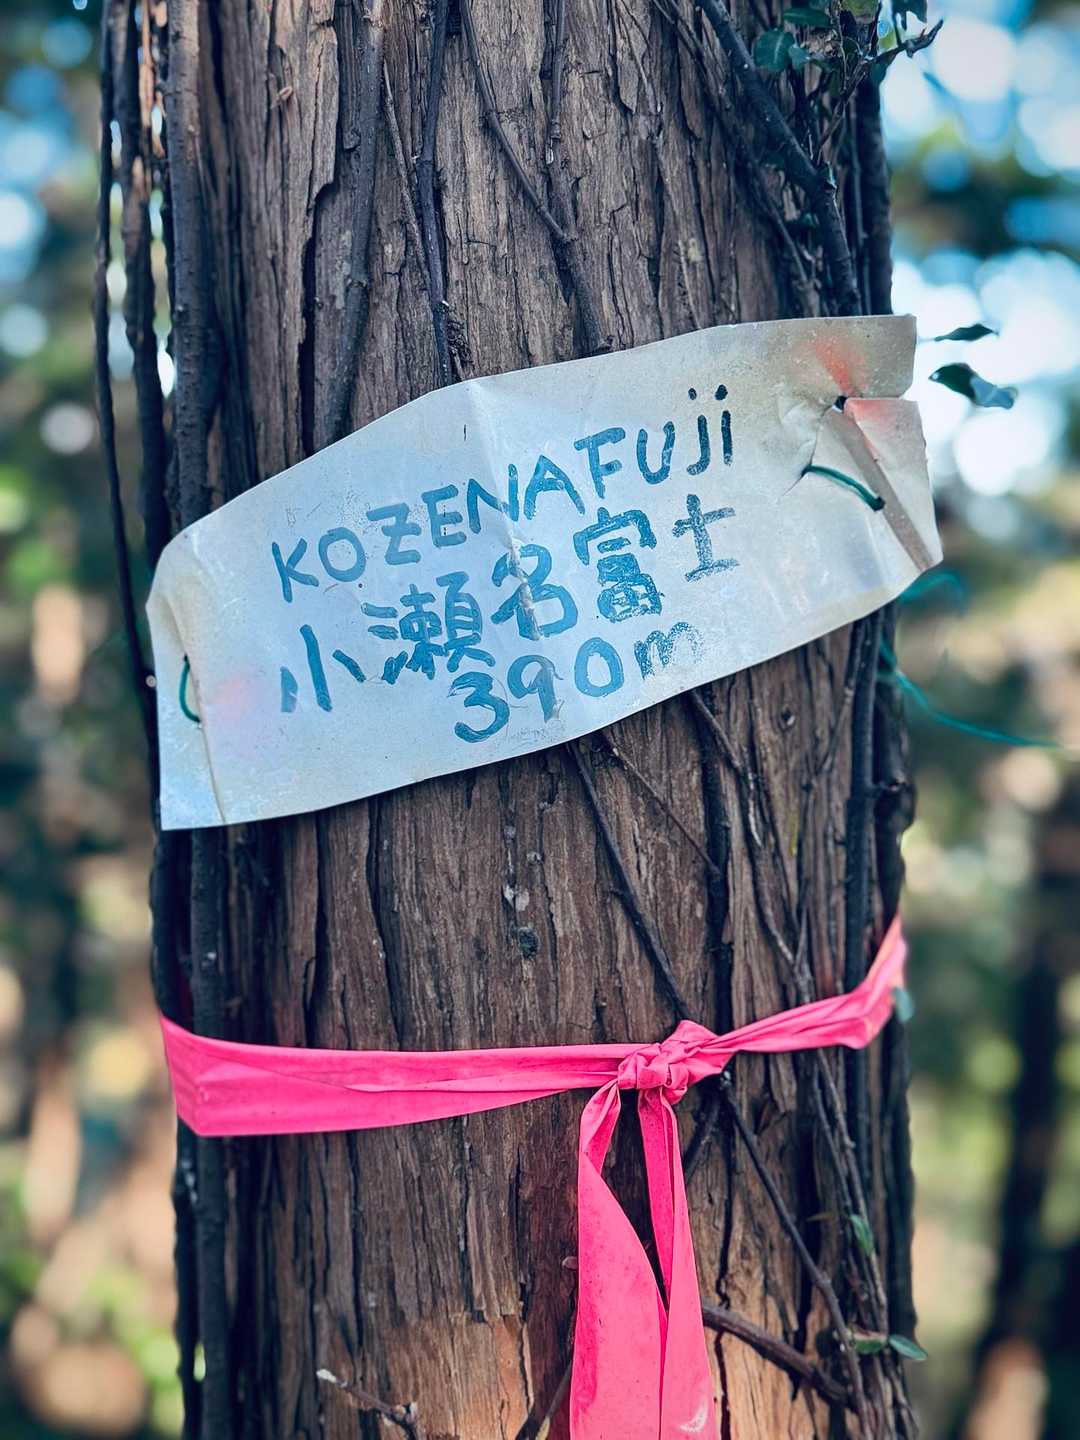 KOZENAFUJi
小瀬名富士
390m